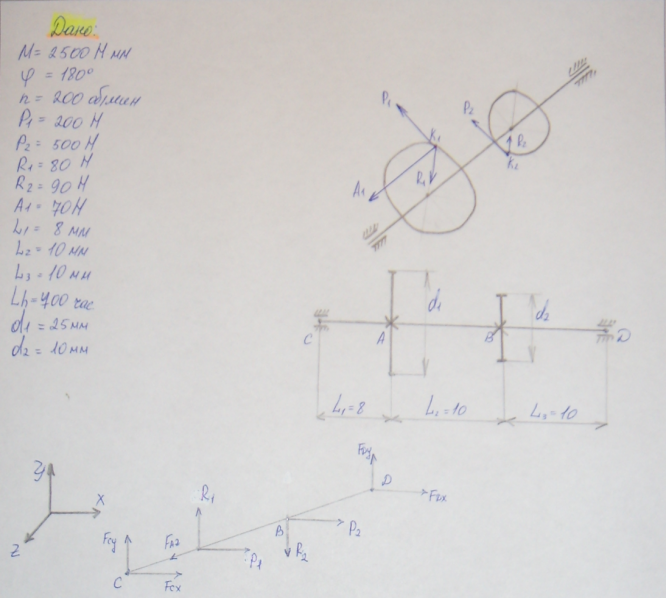 Дано:
M = 2500 Н мм
φ = 180°
n = 200 об/мин
P₁ = 200 Н
P₂ = 500 Н
R₁ = 80 Н
R₂ = 90 Н
A₁ = 70 Н
L₁ = 8 мм
L₂ = 10 мм
L₃ = 10 мм
Lh = 700 час
d₁ = 25 мм
d₂ = 10 мм
P₁ K₁ A₁ R₁
P₂ R₂ K₂
C A d₁ B d₂ D
L₁=8 L₂=10 L₃=10
y x z
Fcy C Fcx R₁ P₁
B P₂ R₂
FDy D FDx